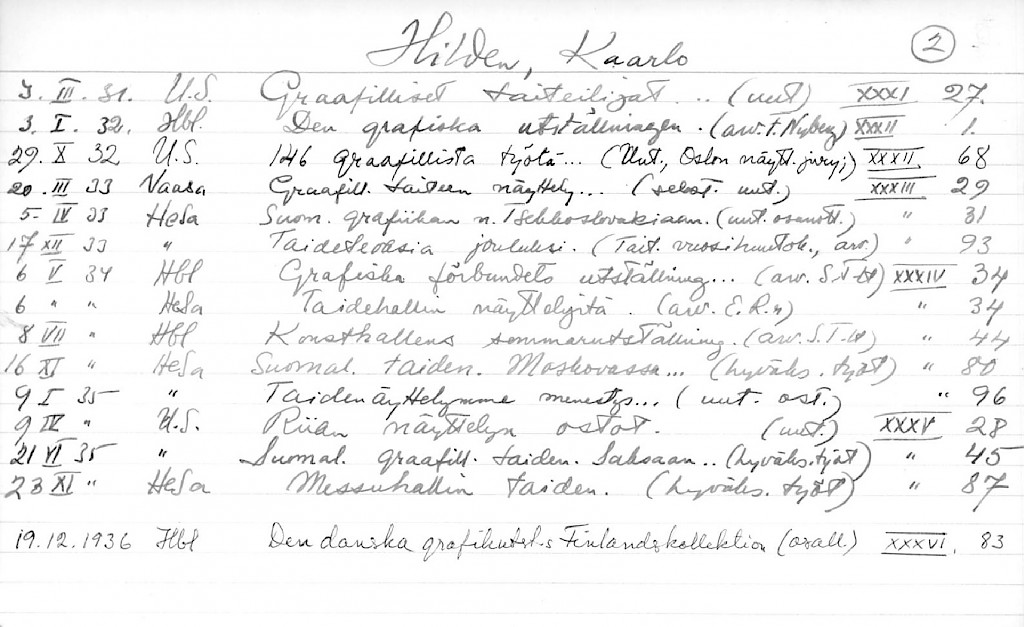 Hilden, Kaarlo 2
3. III. 31. U.S. Graafilliset taiteilijat... (uut) XXXI 27.
3. I. 32. Hbl. Den grafiska utställningen. (arv. t. Nyberg) XXXII 1.
29. X 32 U.S. 146 graafillista työtä... (Uut., Oslon näytt. jury;) XXXII 68
20. III 33 Vaasa Graafill. taiteen näyttely... (selost. uut.) XXXIII 29
5- IV 33 HeSa Suom. grafiikan n. Tsekkoslovakiaan. (uut. osanott.) " 31
17 XII 33 " Taideteoksia jouluksi. (Tait. vuosihuutok., arv.) " 93
6 V 34 Hbl Grafiska förbundets utställning... (arv. S.T-ll) XXXIV 34
6 " " HeSa Taidehallin näyttelyitä. (arv. E.R-n) " 34
8 VII " Hbl Konsthallens sommarutställning. (arv. S.T-ll) " 44
16 XI " HeSa Suomal. taiden. Moskovassa... (hyväks. työt) " 80
9 I 35 " Taidenäyttelymme menestys... (uut. ost.) " 96
9 IV " U.S. Riian näyttelyn ostot. (uut.) XXXV 28
21 VI 35 " Suomal. graafill. taiden. Saksaan.. (hyväks. työt) " 45
23 XI " HeSa Messuhallin taiden. (hyväks. työt) " 87
19.12.1936 Hbl Den danska grafikutst-s Finlandskollektion (osall.) XXXVI. 83